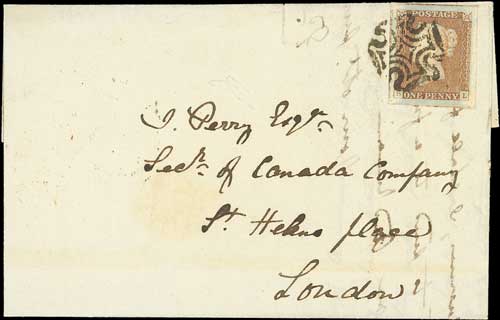 POSTAGE
ONE PENNY
L
J. Perry Esqr.
Secr. of Canada Company
St Helens place
London